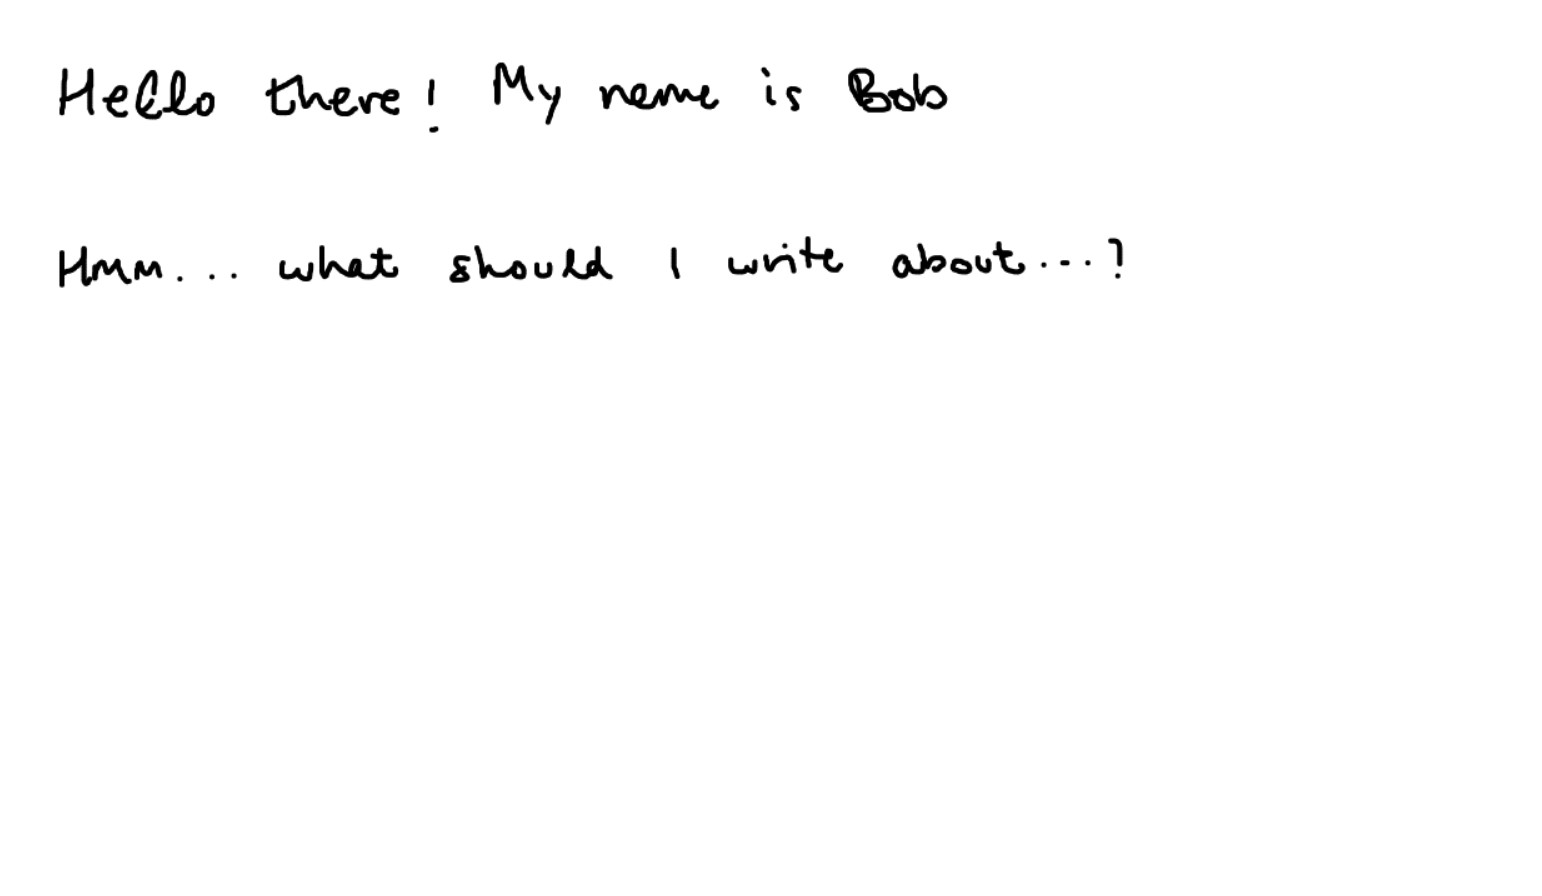 Hello there! My name is Bob
Hmm... what should I write about...?